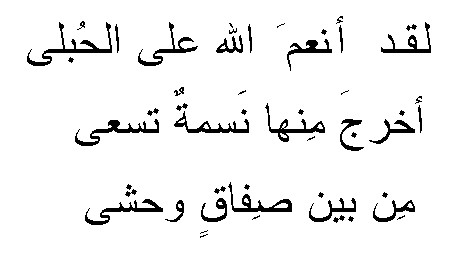 لقد أنعمَ الله على الحُبلى
أخرجَ مِنها نَسمةٌ تسعى
مِن بين صِفاقٍ وحشى